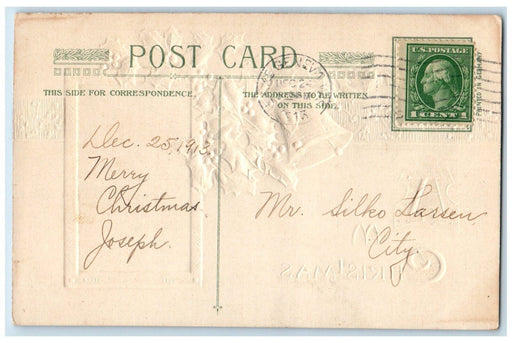 POST CARD
THIS SIDE FOR CORRESPONDENCE.
THE ADDRESS TO BE WRITTEN
ON THIS SIDE.
U.S. POSTAGE
1 CENT 1
Dec. 25, 1913.
Merry
Christmas.
Joseph.
Mr. Silko Larsen,
City.